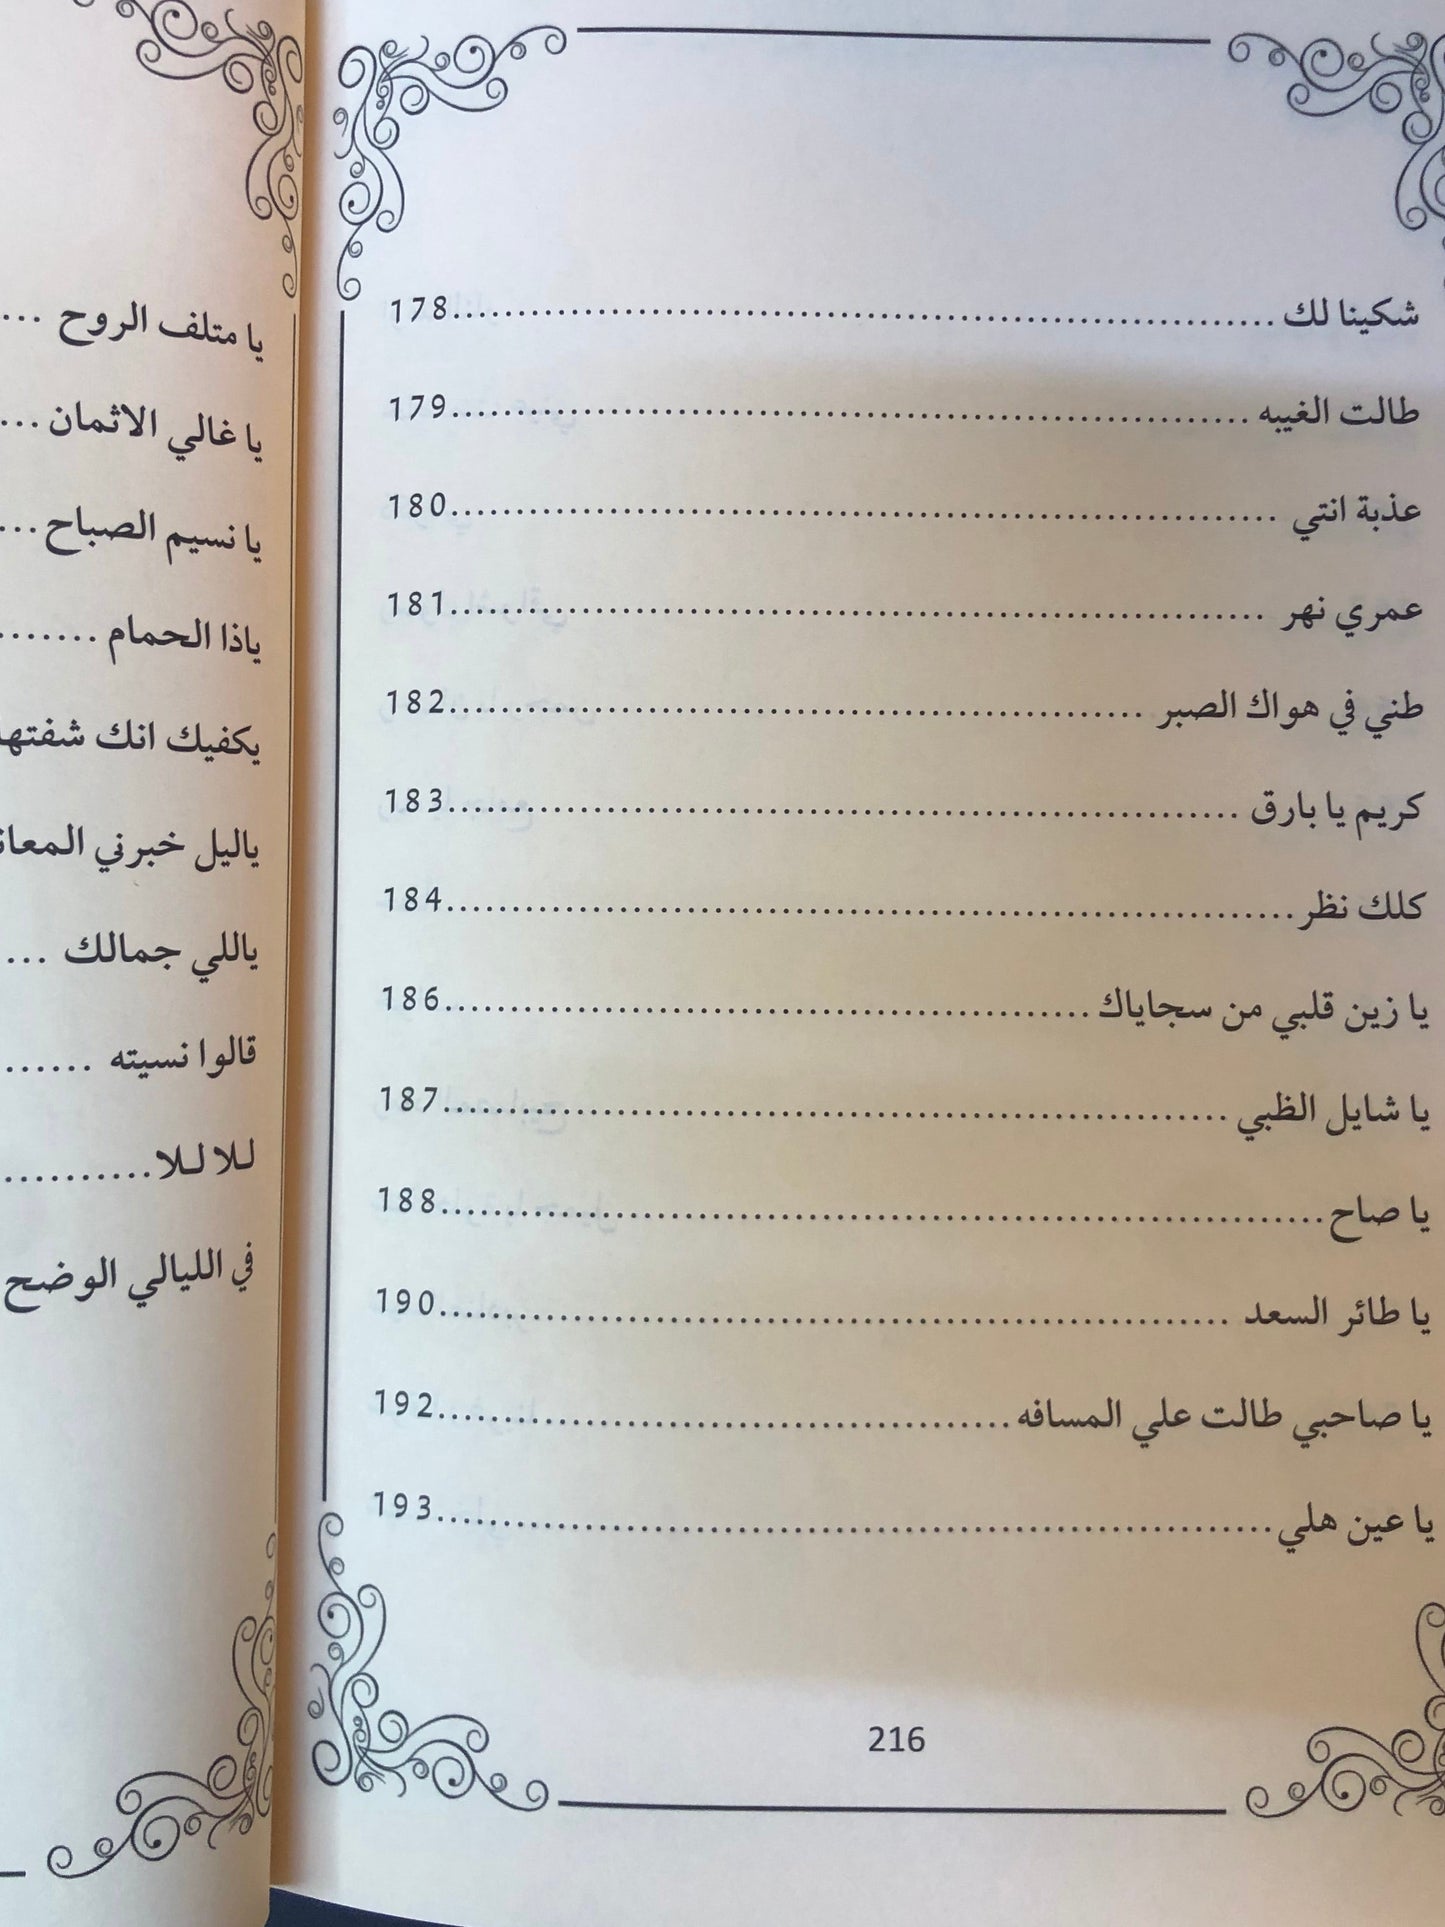 شكينا لك ................ 178
طالت الغيبه ................ 179
عذبة انتي ................ 180
عمري نهر ................ 181
طني في هواك الصبر ................ 182
كريم يا بارق ................ 183
كلك نظر ................ 184
يا زين قلبي من سجاياك ................ 186
يا شايل الظبي ................ 187
يا صاح ................ 188
يا طائر السعد ................ 190
يا صاحبي طالت علي المسافه ................ 192
يا عين هلي ................ 193
216
يا متلف الروح ...
يا غالي الاثمان ...
يا نسيم الصباح ...
ياذا الحمام ........
يكفيك انك شفتها
ياليل خبرني
ياللي جمالك ...
قالوا نسيته ......
للا للا ...........
في الليالي الوضح